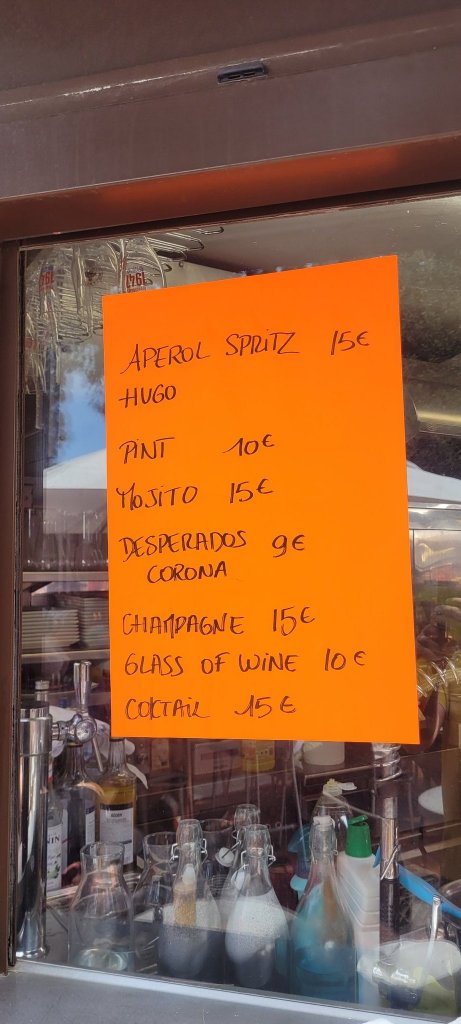 APEROL SPRITZ 15€
HUGO
PINT 10€
MOJITO 15€
DESPERADOS 9€
CORONA
CHAMPAGNE 15€
GLASS OF WINE 10€
COCTAIL 15€